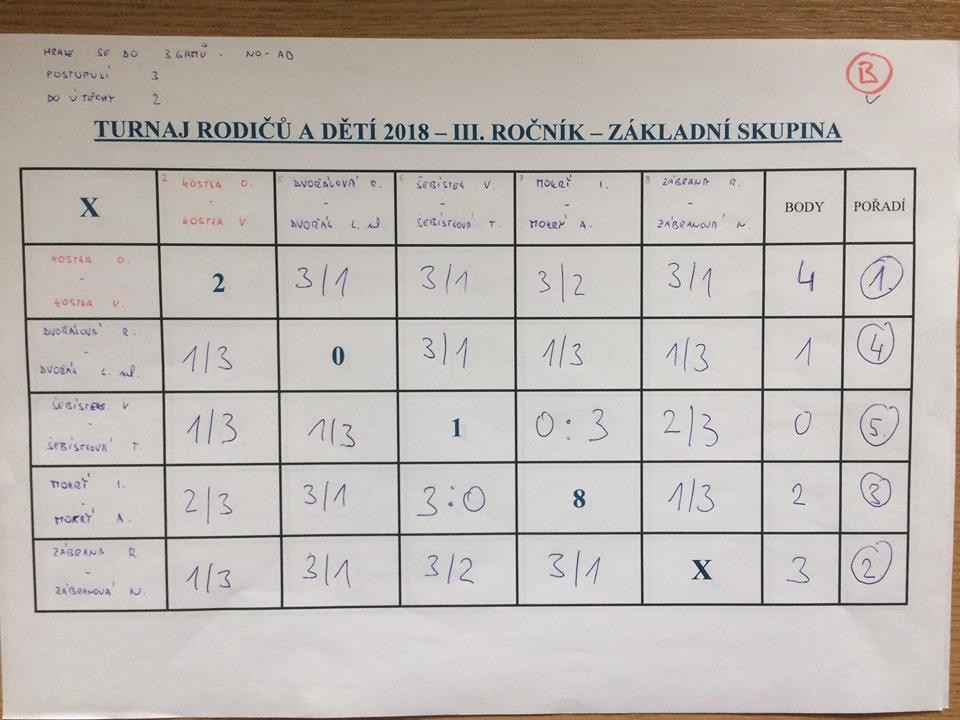 HRAJE SE DO 3 GAMŮ - NO-AD
POSTUPUJÍ 3
DO ÚTĚCHY 2
B
TURNAJ RODIČŮ A DĚTÍ 2018 – III. ROČNÍK – ZÁKLADNÍ SKUPINA
X 2 KOSTKA O. - KOSTKA V 5 DVOŘÁKOVÁ R. - DVOŘÁK L. ml. 6 ŠEBÍSTEK V. - ŠEBÍSTKOVÁ T. 7 MOKRÝ I. - MOKRÝ A. 8 ZÁBRANA R. - ZÁBRANOVÁ N. BODY POŘADÍ
KOSTKA O. - KOSTKA V. 2 3/1 3/1 3/2 3/1 4 1.
DVOŘÁKOVÁ R. - DVOŘÁK L. ml. 1/3 0 3/1 1/3 1/3 1 4
ŠEBÍSTEK V. - ŠEBÍSTKOVÁ T. 1/3 1/3 1 0:3 2/3 0 5.
MOKRÝ I. - MOKRÝ A. 2/3 3/1 3:0 8 1/3 2 3
ZÁBRANA R - ZÁBRANOVÁ N. 1/3 3/1 3/2 3/1 X 3 2